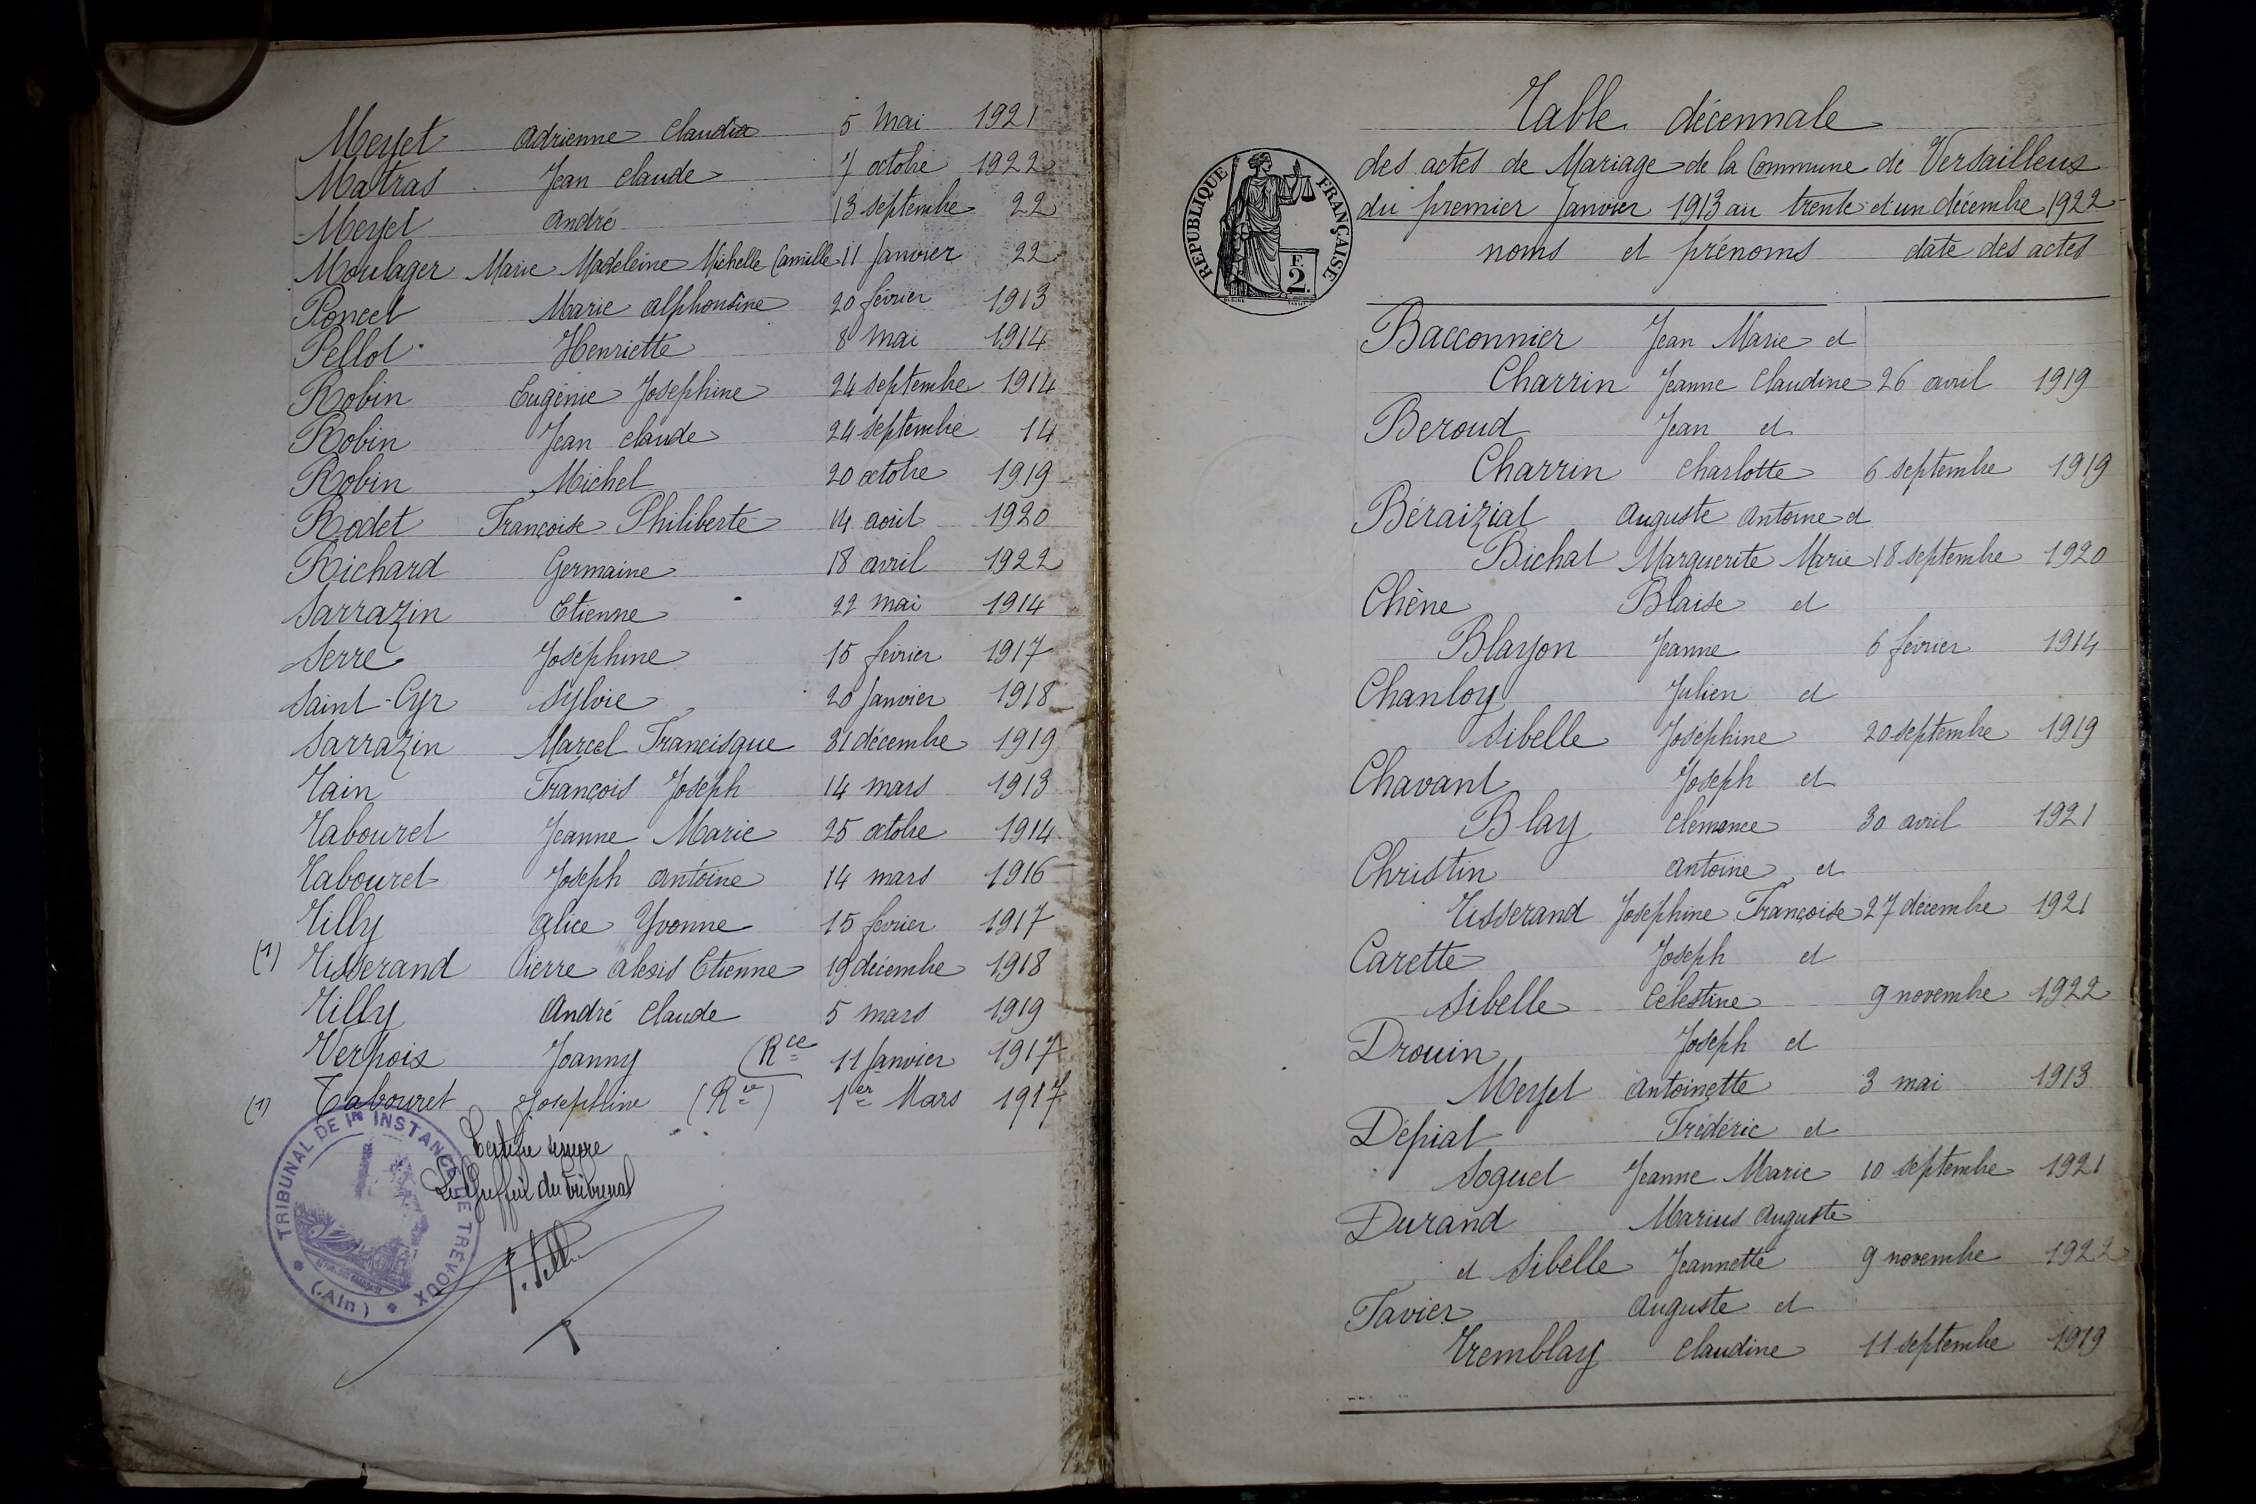 Meyet Adrienne Claudia 5 Mai 1921
Matras Jean Claude 7 octobre 1922
Meyet André 13 septembre 22
Moulager Marie Madeleine Michelle Camille 11 Janvier 22
Poncet Marie Alphonsine 20 février 1913
Pellot Henriette 8 mai 1914
Robin Eugénie Joséphine 24 septembre 1914
Robin Jean Claude 24 septembre 14
Robin Michel 20 octobre 1919
Rodet Françoise Philiberte 14 août 1920
Richard Germaine 18 avril 1922
Sarrazin Etienne 22 mai 1914
Serre Joséphine 15 février 1917
Saint-Cyr Sylvie 20 Janvier 1918
Sarrazin Marcel Francisque 31 décembre 1919
Tain François Joseph 14 mars 1913
Tabouret Jeanne Marie 25 octobre 1914
Tabouret Joseph Antoine 14 mars 1916
Tilly Alice Yvonne 15 février 1917
(1) Tisserand Pierre Alexis Etienne 19 décembre 1918
Tilly André Claude 5 mars 1919
Verpoix Joanny (Rce 11 Janvier 1917
(1) Tabouret Joséphine (Rce) 1er Mars 1917
Le Greffier du tribunal
TRIBUNAL DE 1re INSTANCE DE TRÉVOUX
(Ain)
Table décennale
des actes de Mariage de la Commune de Versailleux
du premier Janvier 1913 au trente et un décembre 1922
noms et prénoms date des actes
RÉPUBLIQUE FRANÇAISE
F
2.
Bacconnier Jean Marie et
Charrin Jeanne Claudine 26 avril 1919
Beroud Jean et
Charrin Charlotte 6 septembre 1919
Béraizial Auguste Antoine et
Bichat Marguerite Marie 18 septembre 1920
Chêne Blaise et
Blayon Jeanne 6 février 1914
Chanloy Julien et
Sibelle Joséphine 20 septembre 1919
Chavant Joseph et
Blay Clémence 30 avril 1921
Christin Antoine et
Tisserand Joséphine Françoise 27 décembre 1921
Carette Joseph et
Sibelle Célestine 9 novembre 1922
Drouin Joseph et
Meyet Antoinette 3 mai 1913
Dépiat Frédéric et
Soguet Jeanne Marie 10 septembre 1921
Durand Marius Auguste
et Sibelle Jeannette 9 novembre 1922
Favier Auguste et
Tremblay Claudine 11 septembre 1919